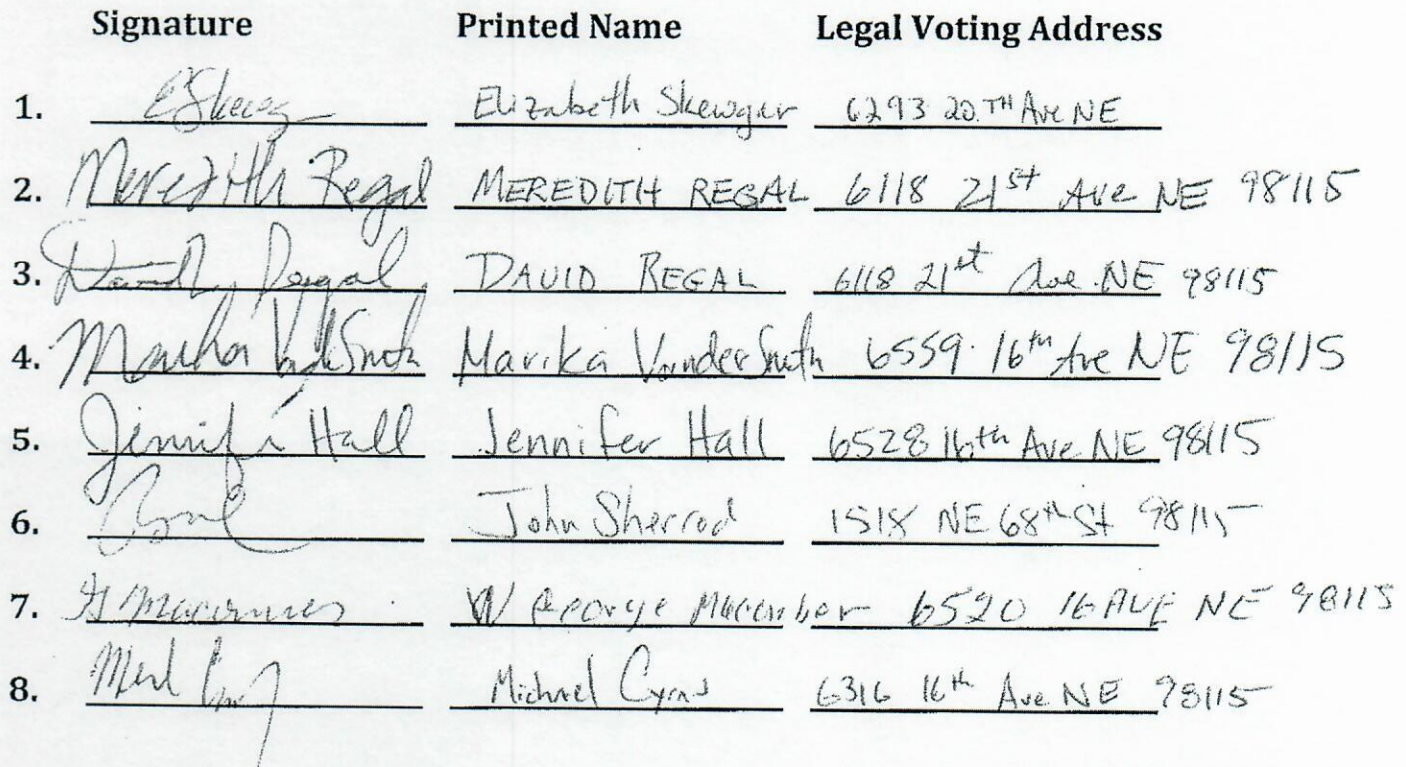 Signature Printed Name Legal Voting Address
1. Elizabeth Skewgar 6293 20.TH Ave NE
2. Meredith Regal MEREDITH REGAL 6118 21st Ave NE 98115
3. David Regal DAVID REGAL 6118 21st Ave NE 98115
4. Marika VanderSmith 6559 16th Ave NE 98115
5. Jennifer Hall Jennifer Hall 6528 16th Ave NE 98115
6. John Sherrod 1518 NE 68th St 98115
7. W George 6520 16 AVE NE 98115
8. Michael 6316 16th Ave NE 98115